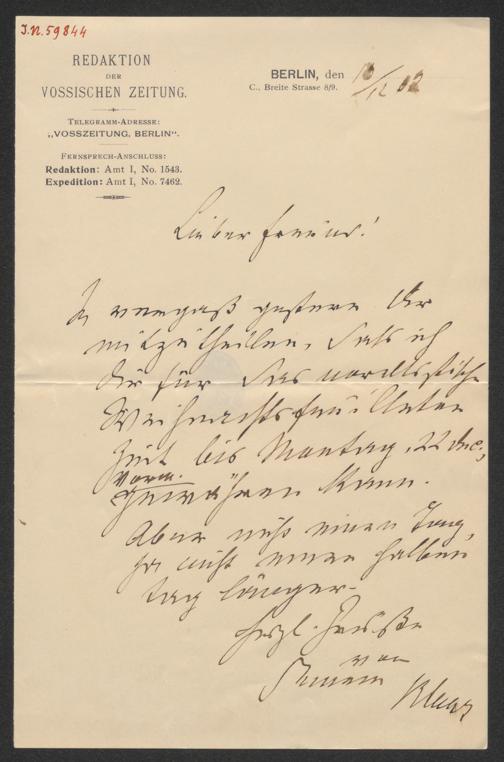 J.N. 59844
REDAKTION
DER
VOSSISCHEN ZEITUNG.
TELEGRAMM-ADRESSE:
„VOSSZEITUNG, BERLIN“.
FERNSPRECH-ANSCHLUSS:
Redaktion: Amt I, No. 1543.
Expedition: Amt I, No. 7462.
BERLIN, den 10/12 02
C., Breite Strasse 8/9.
Lieber Freund!
Ich vergaß gestern Dir
mitzutheilen, daß ich
Dir für das
Weihnachtsfeuilleton
Zeit bis Montag, 22 Dec.,
Vorm.
gewähren kann.
Aber nicht einen Tag,
ja nicht einen halben
Tag länger.
Herzl. Grüße
von
Deinem
Klaar